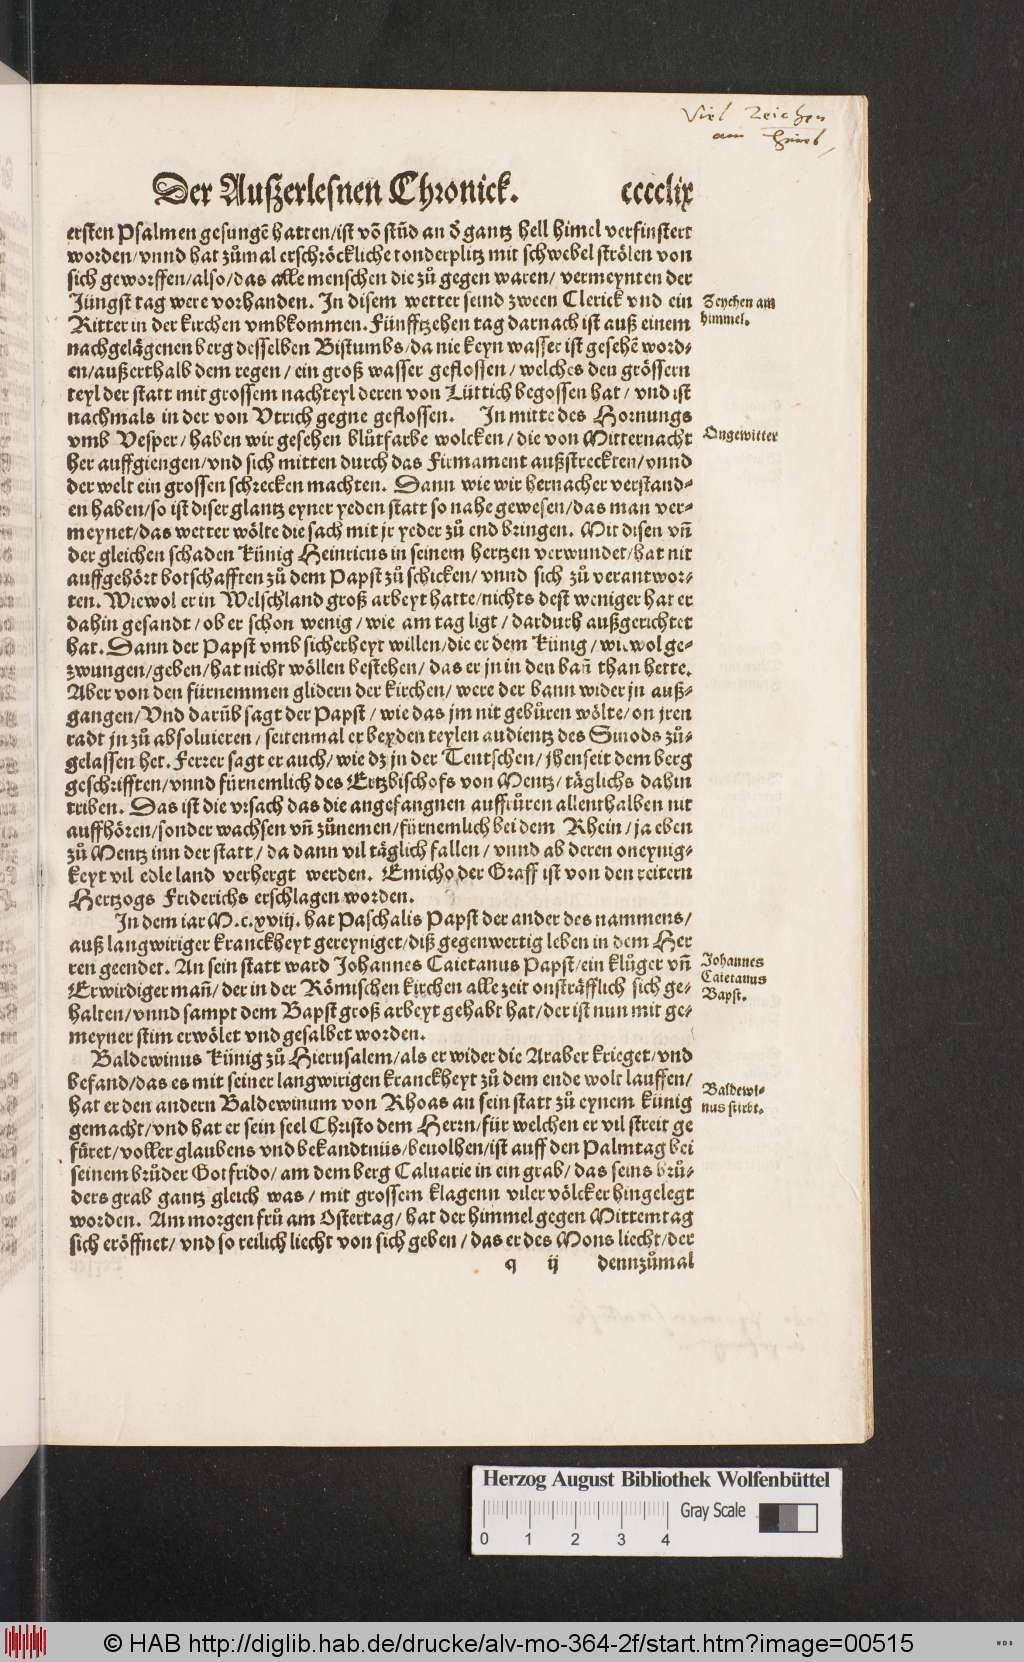 Viel Zeichen
am Himel
Der Außerlesnen Chronick. ccccclix
ersten Psalmen gesungẽ hatten/ist võ stũd an d̾ gantz hell himel verfinstert
worden/vnnd hat zůmal erschröckliche tonderplitz mit schwebel strölen von
sich geworffen/also/das alle menschen die zů gegen waren/ vermeynten der
Jüngst tag were vorhanden. In disem wetter seind zween Clerick vnd ein
Ritter in der kirchen vmbkommen. Fünfftzehen tag darnach ist auß einem
nachgelägenen berg desselben Bistumbs/da nie keyn wasser ist gesehẽ word-
en/außerthalb dem regen/ein groß wasser geflossen/welches den grössern
teyl der statt mit grossem nachteyl deren von Lüttich begossen hat/vnd ist
nachmals in der von Vtrich gegne geflossen. In mitte des Hornungs
vmb Vesper/haben wir gesehen blůtfarbe wolcken/die von Mitternacht
her auffgiengen/vnd sich mitten durch das Firmament außstreckten/vnnd
der welt ein grossen schrecken machten. Dann wie wir hernacher verstand-
en haben/so ist diser glantz eyner yeden statt so nahe gewesen/das man ver-
meynet/das wetter wölte die sach mit jr yeder zů end bringen. Mit disen vñ
der gleichen schaden Künig Heinricus in seinem hertzen verwundet/hat nit
auffgehört botschafften zů dem Papst zů schicken/vnnd sich zů verantwor-
ten. Wiewol er in Welschland groß arbeyt hatte/nichts dest weniger hat er
dahin gesandt/ob er schon wenig/wie am tag ligt/dardurh außgerichtet
hat. Dann der Papst vmb sicherheyt willen/die er dem Künig/wiewol ge-
zwungen/geben/hat nicht wöllen bestehen/das er jn in den bañ than hette.
Aber von den fürnemmen glidern der kirchen/were der bann wider jn auß-
gangen/Vnd darüb sagt der Papst/wie das jm nit gebüren wölte/on jren
radt jn zů absoluieren/seitenmal er beyden teylen audientz des Sinods zů-
gelassen het. Ferrer sagt er auch/wie dz jn der Teutschen/jhenseit dem berg
geschrifften/vnnd fürnemlich des Ertzbischofs von Mentz/täglichs dahin
triben. Das ist die vrsach das die angefangnen auffrüren allenthalben nit
auffhören/sonder wachsen vñ zůnemen/fürnemlich bei dem Rhein/ja eben
zů Mentz inn der statt/da dann vil täglich fallen/vnnd ab deren oneynig-
keyt vil edle land verhergt werden. Emicho der Graff ist von den reitern
Hertzogs Friderichs erschlagen worden.
In dem iar M.c.xviij. hat Paschalis Papst der ander des nammens/
auß langwiriger kranckheyt gereyniget/diß gegenwertig leben in dem Her
ren geendet. An sein statt ward Johannes Caietanus Papst/ein klůger vñ
Erwirdiger mañ/der in der Römischen kirchen alle zeit onsträfflich sich ge-
halten/vnnd sampt dem Bapst groß arbeyt gehabt hat/der ist nun mit ge-
meyner stim erwölet vnd gesalbet worden.
Baldewinus Künig zů Hierusalem/als er wider die Araber krieget/vnd
befand/das es mit seiner langwirigen kranckheyt zů dem ende wolt lauffen/
hat er den andern Baldewinum von Rhoas an sein statt zů eynem künig
gemacht/vnd hat er sein seel Christo dem Herrn/für welchen er vil streit ge
füret/voller glaubens vnd bekandtnüs/beuolhen/ist auff den Palmtag bei
seinem brůder Gotfrido/am dem berg Caluarie in ein grab/das seins brů-
ders grab gantz gleich was/mit grossem klagenn viler völcker hingelegt
worden. Am morgen frů am Ostertag/hat der himmel gegen Mittemtag
sich eröffnet/vnd so reilich liecht von sich geben/das er des Mons liecht/der
q ij dennzůmal
Zeychen am
himmel.
Ongewitter
Johannes
Caietanus
Bapst.
Baldewi-
nus stirbt.
Herzog August Bibliothek Wolfenbüttel
Gray Scale
0 1 2 3 4
© HAB http://diglib.hab.de/drucke/alv-mo-364-2f/start.htm?image=00515